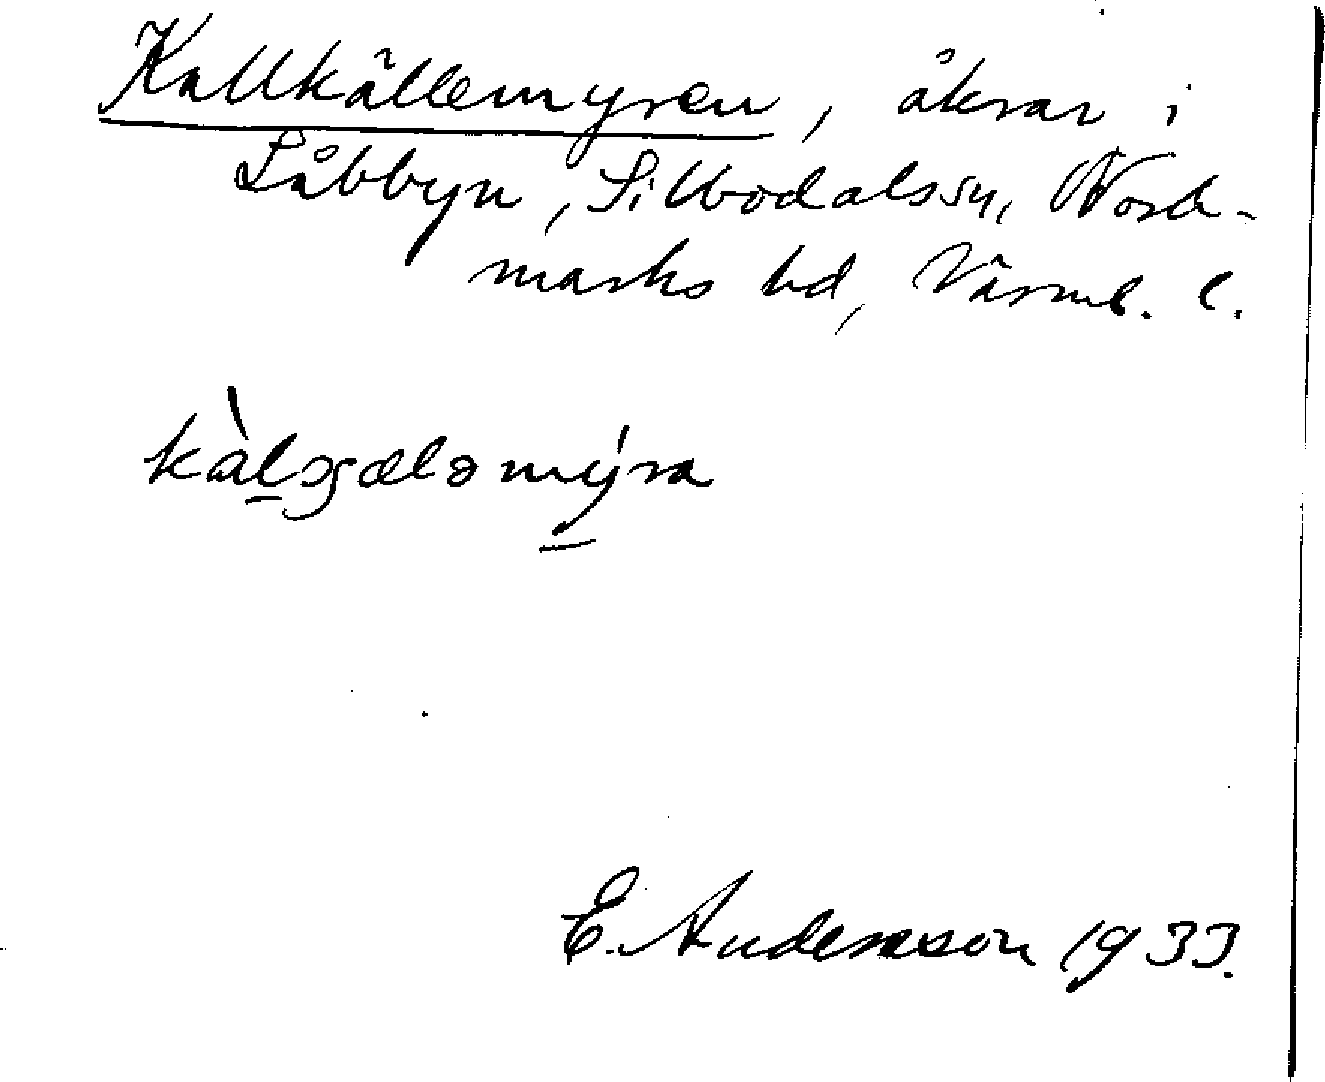 Kallkällemyren, åkrar i
Låbbyn, Silbodals sn, Nord-
marks hd, Värml. l.
E. Andersson 1933.